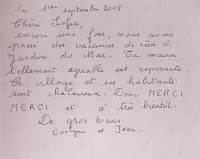 le 1er septembre 2015
Chère Sofia,
encore une fois, nous avons
passé des vacances de rêve à
Jardins du Mas. Ta maison
tellement agréable est reposante
Ce village et ses habitants
sont chaleureux. Donc MERCI
MERCI et à très bientôt.
De gros bisous.
Evelyne et Yvon.